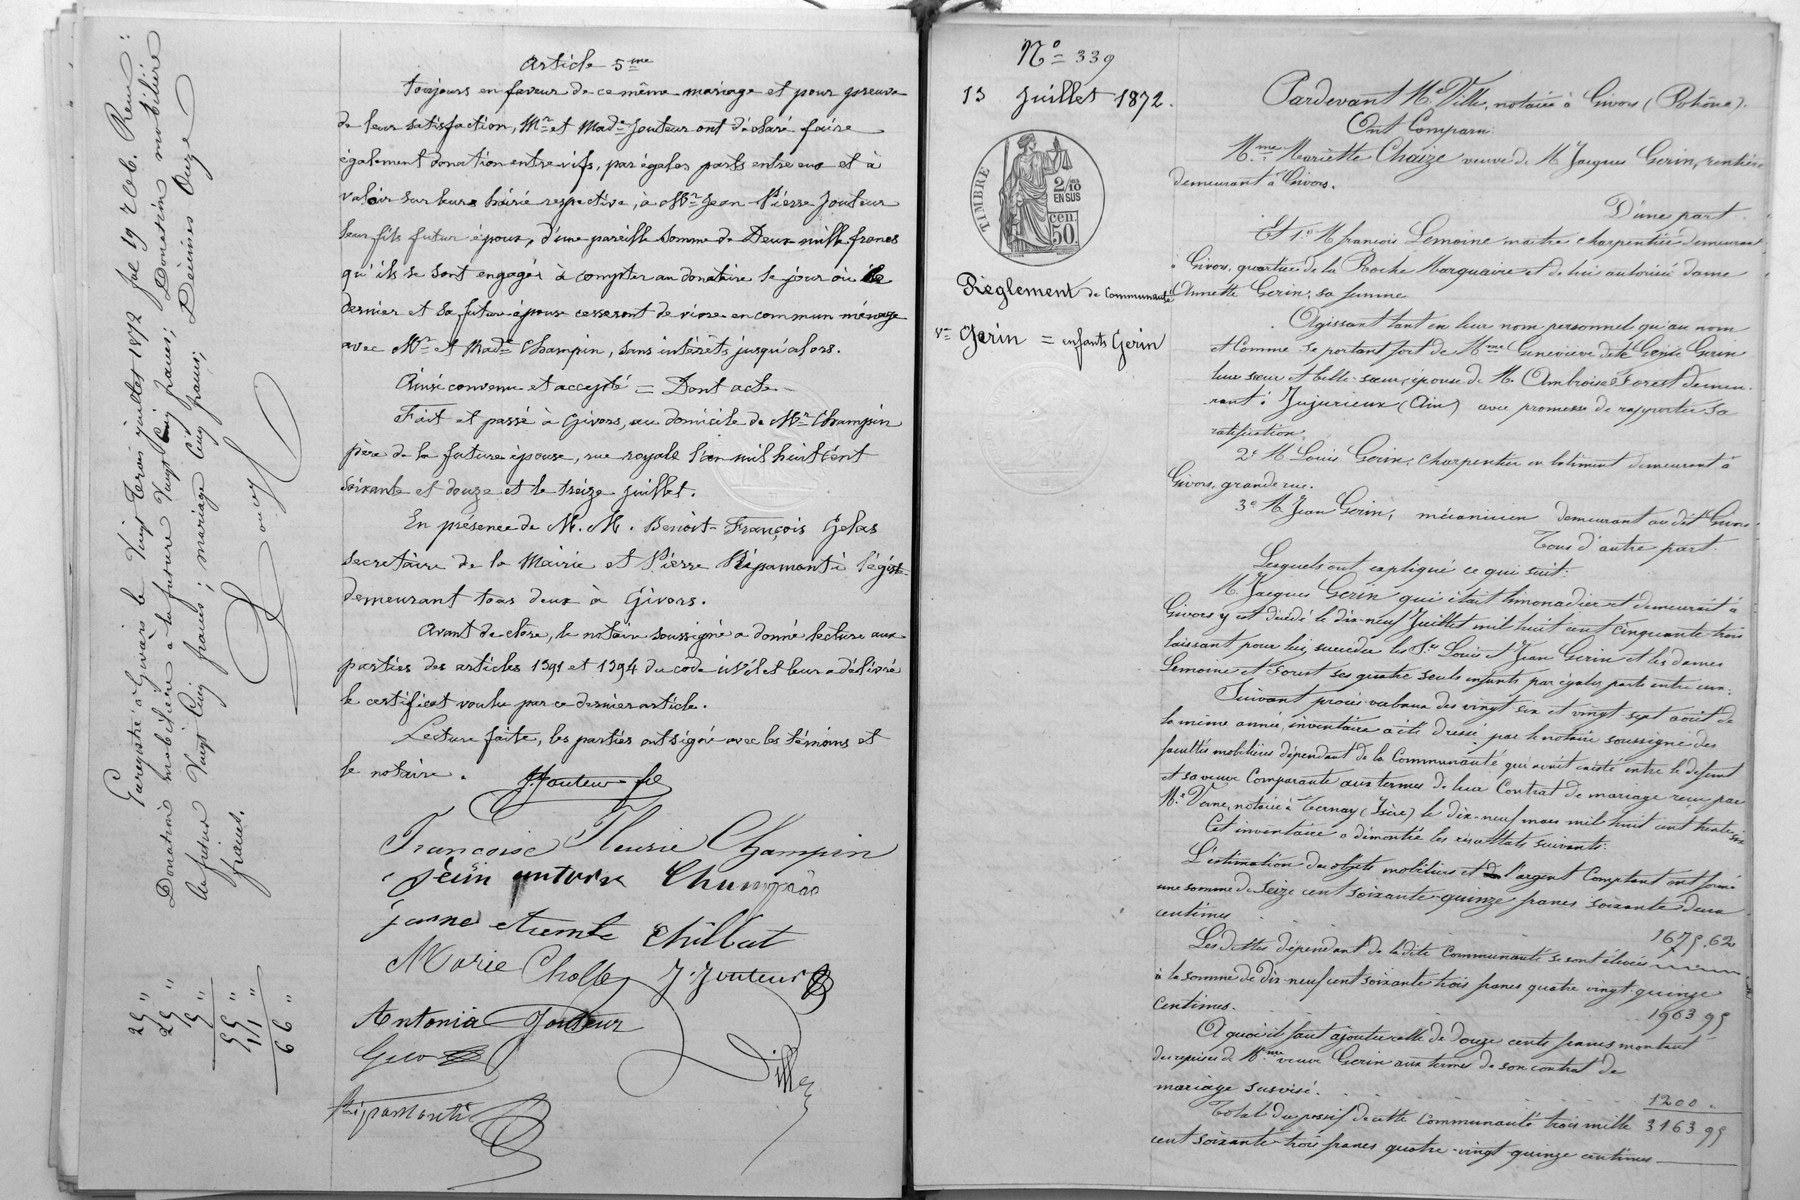 Article 5me
Toujours en faveur de ce même mariage et pour preuve
de leur satisfaction, Mr et Made Jouteur ont déclaré faire
également donation entre vifs, par égales parts entre eux et à
valoir sur leurs hoirie respective, à Mr Jean Pierre Jouteur
leur fils futur époux, d'une pareille somme de Deux mille francs
qu'ils se sont engagés à compter au donataire le jour où ce
dernier et sa future épouse cesseront de vivre en commun ménage
avec Mr et Made Champin, sans intérêts jusqu'alors.
Ainsi convenu et accepté = Dont acte
Fait et passé à Givors, au domicile de Mr Champin
père de la future épouse, rue royale l'an mil huit cent
soixante et douze et le treize juillet.
En présence de M. M. Benoit François Gelas
secretaire de la Mairie et Pierre Ripamonti
demeurant tous deux à Givors.
Avant de clore, le notaire soussigné a donné lecture aux
parties des articles 1391 et 1394 du code civil et leur a délivré
le certificat voulu par ce dernier article.
Lecture faite, les parties ont signé avec les témoins et
le notaire.
Jouteur fils
Francoise Fleurie Champin
Jean antoine Champin
Marie Cholle J. Jouteur
Antonia Jouteur
Ripamonti
Ville
Enregistré à Givors le Vingt trois juillet 1872 fol 19 Reçu:
Donation mobilière à la future Vingt Cinq francs; Donation mobilière
au futur Vingt Cinq francs; mariage Cinq francs; Décimes Onze
francs.
25 "
25 "
5 "
55 "
11 "
66 "
No 339
13 Juillet 1872.
TIMBRE
2/10
EN SUS
cen.
50.
Règlement de communauté
Ve Gerin = enfants Gerin
Pardevant Me Ville, notaire à Givors (Rhône).
Ont Comparu
Mme Mariette Chaize veuve de M Jacques Gerin, rentière
demeurant à Givors.
D'une part.
Et 1o M françois Lemoine maître charpentier demeurant
à Givors, quartier de la Roche Marguaire et de lui autorisée dame
Annette Gerin, sa femme
Agissant tant en leur nom personnel qu'au nom
et Comme se portant fort de Mme Geneviève Gerin
leur sœur et belle-sœur, épouse de M. Ambroise Forest demeu-
rant à Jujurieux (Ain) avec promesse de rapporter sa
ratification.
2o M Louis Gerin, charpentier en batiment demeurant à
Givors, grande rue.
3o M Jean Gerin, mécanicien demeurant au dit Givors
Tous d'autre part.
Lesquels ont expliqué ce qui suit:
M. Jacques Gerin qui était limonadier et demeurait à
Givors y est décédé le dix-neuf Juillet mil huit cent cinquante trois
laissant pour lui succéder les Srs Louis et Jean Gerin et les dames
Lemoine et Forest ses quatre seuls enfants par égales parts entre eux;
Suivant procès-verbaux des vingt six et vingt sept août de
la même année, inventaire a été dressé par le notaire soussigné des
facultés mobilières dépendant de la Communauté qui avait existé entre le defunt
et sa veuve Comparante aux termes de leur Contrat de mariage reçu par
Me Verne, notaire à Ternay (Isère) le dix-neuf mars mil huit cent trente six
Cet inventaire a démontré les résultats suivants:
L'estimation des objets mobiliers et de l'argent Comptant ont formé
une somme de Seize cent soixante-quinze francs soixante deux
centimes 1675,62
Les dettes dépendant de la dite Communauté se sont élevées
à la somme de dix-neuf cent soixante trois francs quatre vingt-quinze
Centimes. 1963 95
A quoi il faut ajouter celle de douze cents francs montant
des reprises de Mme veuve Gerin aux termes de son contrat de
mariage susvisé. 1200.
Total du passif de cette Communauté trois mille 3163 95
cent soixante-trois francs quatre-vingt quinze centimes